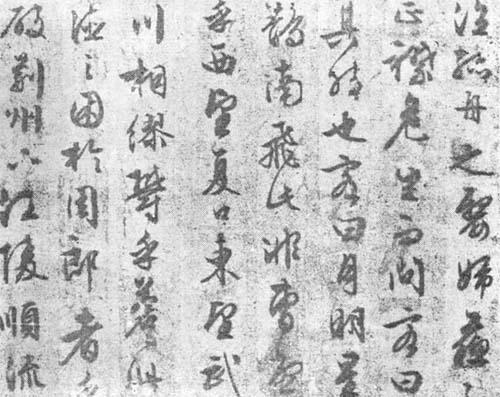 泣孤舟之嫠婦蘇
正襟危坐而問客曰
其然也客曰月明星
鵲南飛此非曹孟
乎西望夏口東望武
川相繆鬱乎蒼〻此
德之困於周郎者乎
破荊州下江陵順流